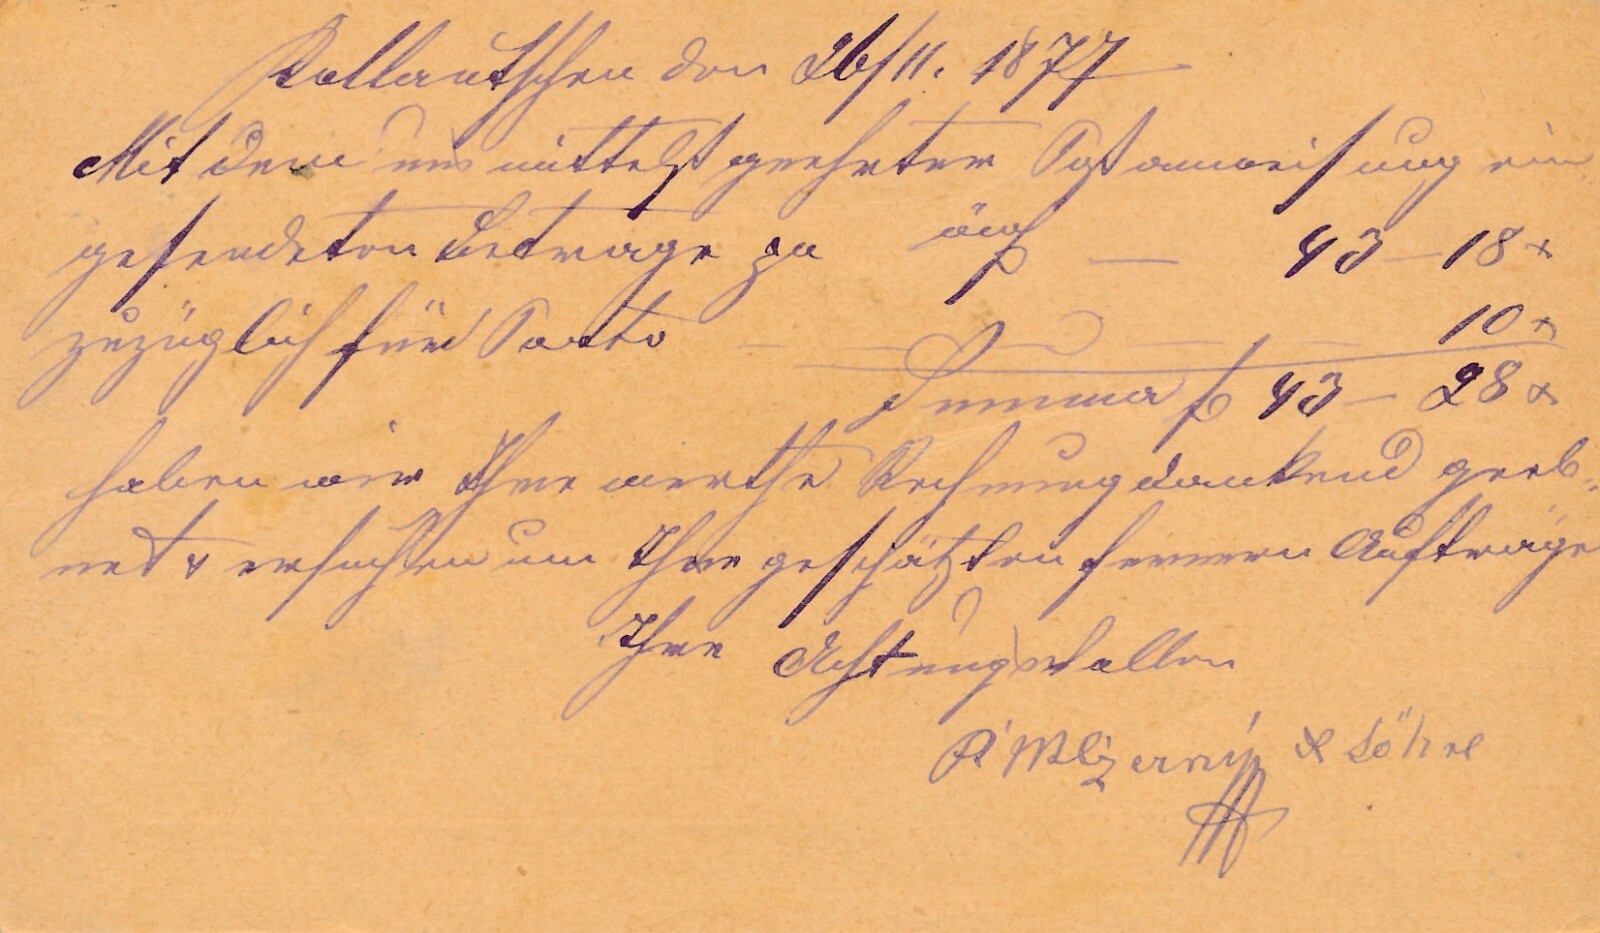 Kollautschen den 26/11. 1877
Mit dem uns mittelst geehrter Postanweisung ein
gesendeten Betrage zu öw f — 43 – 18 x
zuzüglich für Porto — 10 x
Summa f 43 – 28 x
haben wir Ihre werthe Rechnung dankend geeb-
net & ersuchen um Ihre geschätzten fernern Aufträge
Ihre Achtungsvollen
& Söhne